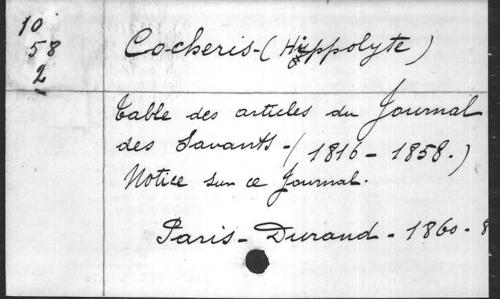 10
58
2
Cocheris - (Hippolyte)
Table des articles du Journal
des Savants - (1816 - 1858.)
Notice sur ce Journal.
Paris - Durand - 1860 - 8